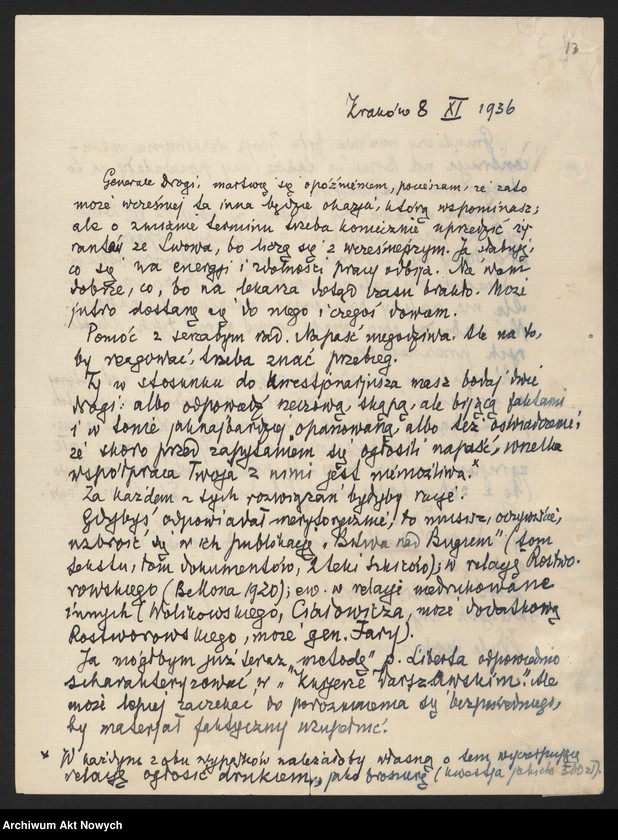 13
Kraków 8 XI 1936
Generale Drogi, martwię się opóźnieniem, pocieszam, że zato
może wcześniej ta inna będzie okazja, którą wspominasz;
ale o zmianie terminu trzeba koniecznie uprzedzić
ze Lwowa, bo liczą się z wcześniejszym. Ja słabuję,
co się na energji i zdolności pracy odbija. Nie wiem
dobrze, co, bo na lekarza dotąd czasu brakło. Może
jutro dostanę się do niego i czegoś dowiem.
Pomóc z serca bym rad. Napaść niegodziwa. Ale na to,
by reagować, trzeba znać przebieg.
Ty w stosunku do kwestjonarjusza masz bodaj dwie
drogi: albo odpowiedź rzeczową, skąpą, ale bijącą faktami
i w tonie jaknajbardziej opanowaną, albo też oświadczenie,
że skoro przed zapytaniem się ogłosili napaść, wszelka
współpraca Twoja z nimi jest niemożliwa.*
Za każdem z tych rozwiązań byłyby racje.
Gdybyś odpowiadał merytorycznie, to musisz, oczywiście,
uzbroić się w ich publikację „Bitwa nad Bugiem" (tom
tekstu, tom dokumentów, 2 teki szkiców); w relację Rostwo-
rowskiego (Bellona 1920); ew. w relacje niedrukowane
innych (Wolikowskiego, Ciałowicza, może dodatkową
Rostworowskiego, może gen. Jary).
Ja mógłbym już teraz „metodę" p. Liberta odpowiednio
scharakteryzować w „Kurjerze Warszawskim". Ale
może lepiej zaczekać do porozumienia się bezpośredniego,
by materjał faktyczny uzupełnić.
* W każdym z obu wypadków należałoby własną o tem wyczerpującą
relację ogłosić drukiem, jako broszurę (kwestja jakichś 300 zł).
Archiwum Akt Nowych